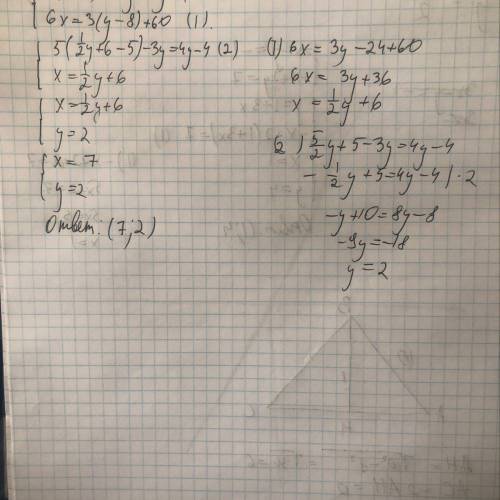 6x = 3(y-8)+60 (1).
5(½y+6-5)-3y=4y-4 (2)
x=½y+6
x=½y+6
y=2
x=7
y=2
Ответ: (7; 2)
(1) 6x = 3y-24+60
6x = 3y+36
x = ½y+6
2) 5/2y+5-3y=4y-4
-½y+5=4y-4 |·2
-y+10=8y-8
-9y=-18
y=2